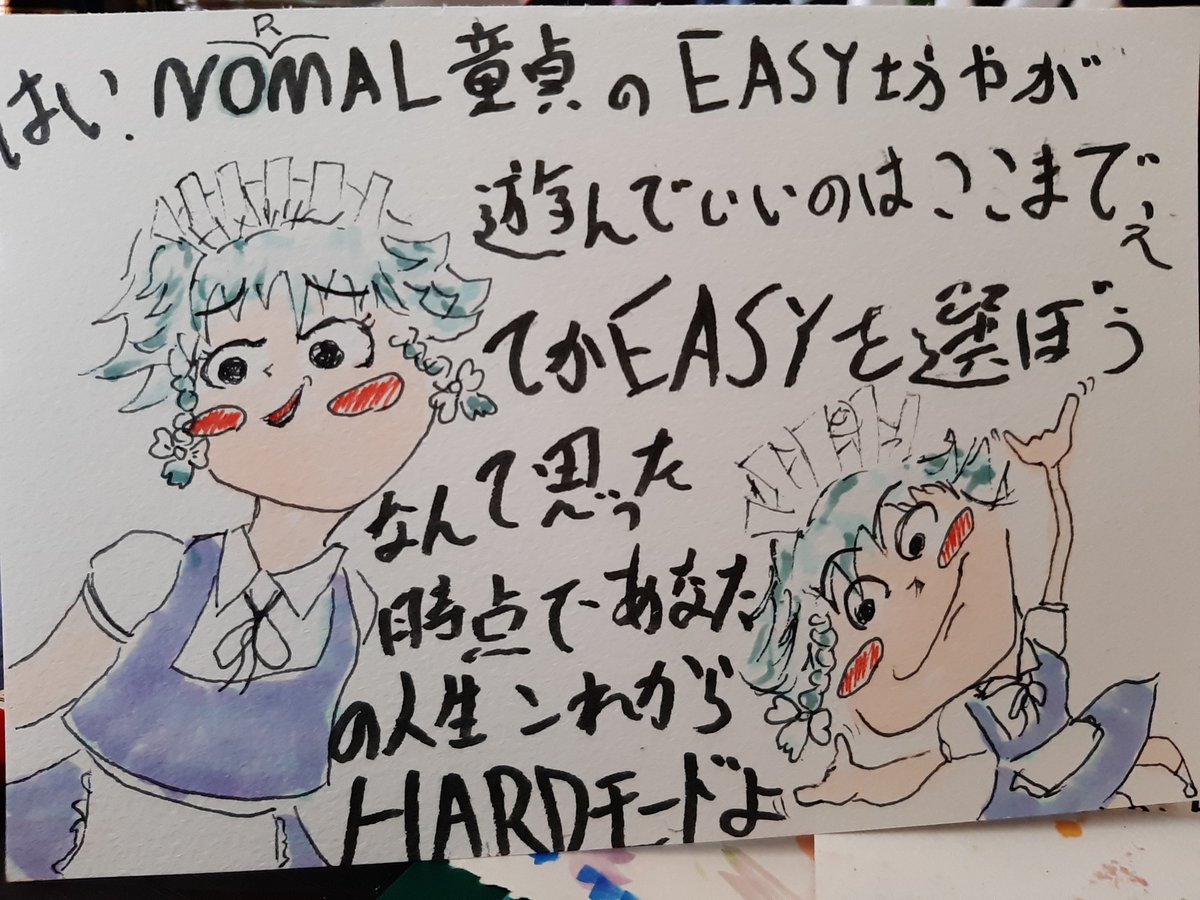 R
はい、NOMAL童貞のEASY坊やが
遊んでいいのはここまでぇ
てかEASYを選ぼう
なんて思った
時点であなた
の人生これから
HARDモードよ